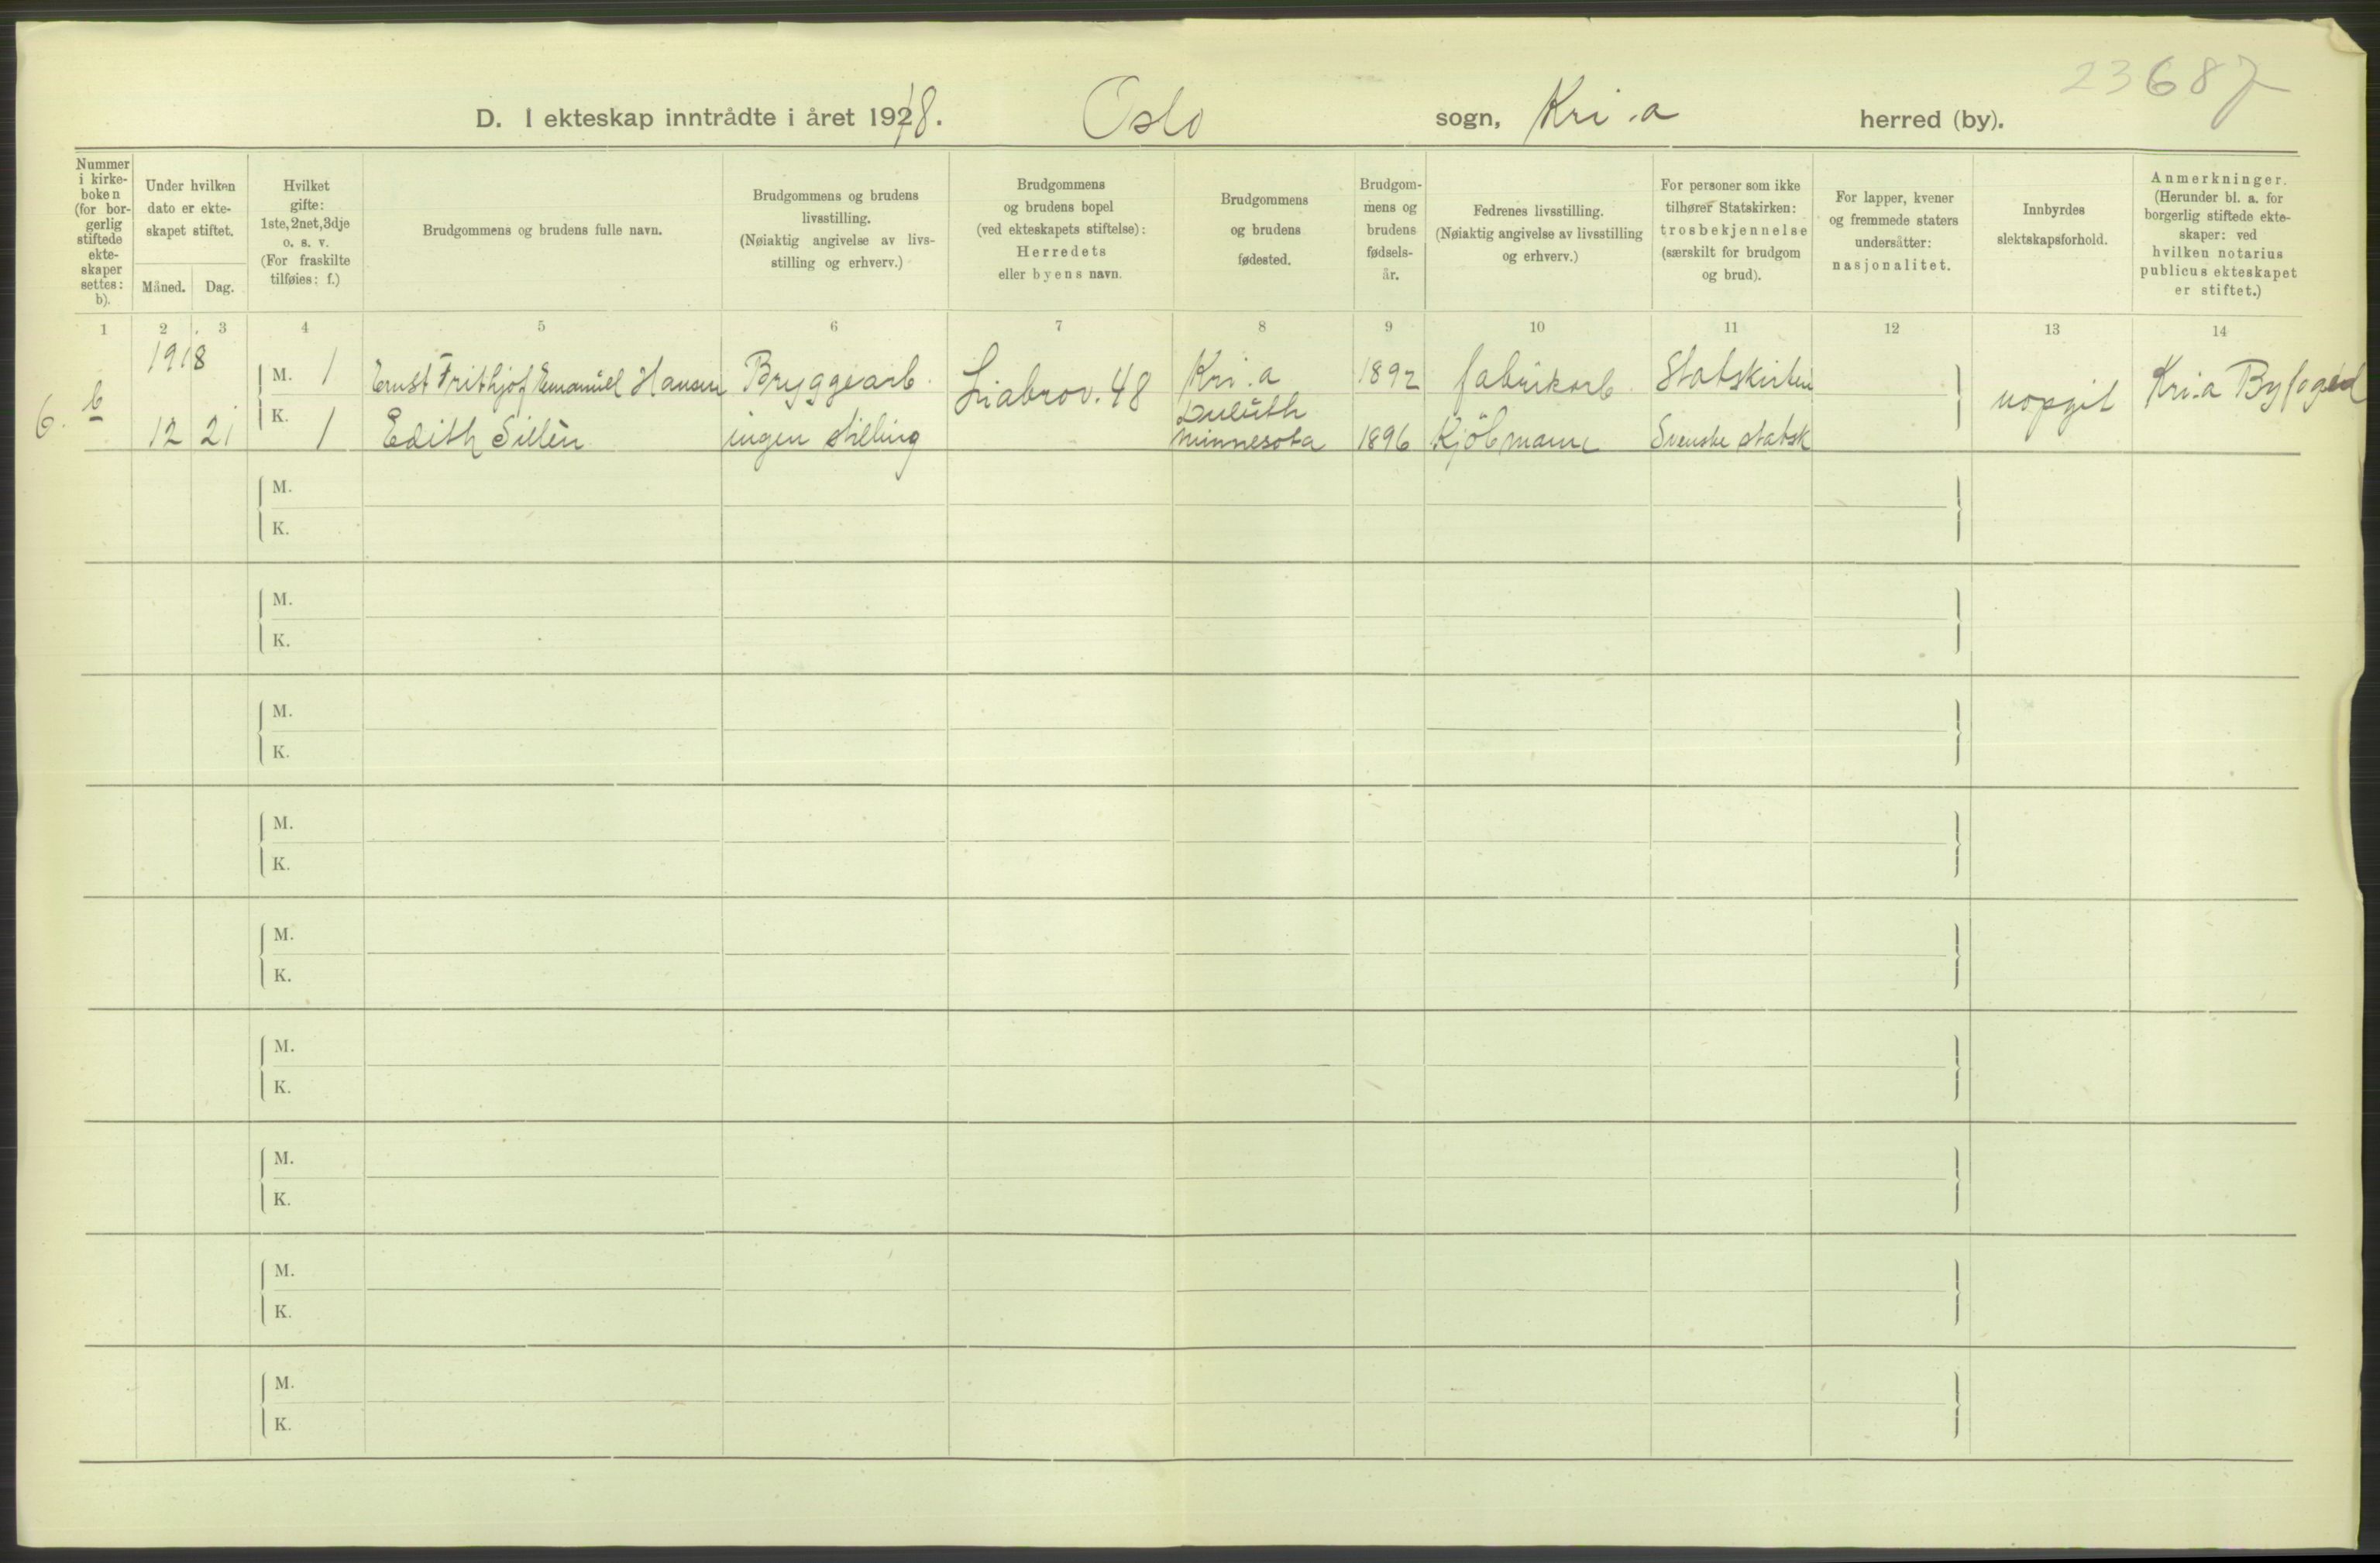 23687
D. I ekteskap inntrådte i året 1918. Oslo sogn, Kri.a herred (by).
Nummer i kirke-boken (for bor-gerlig stiftede ekte-skaper settes: b).
Under hvilken dato er ekte-skapet stiftet.
Måned. Dag.
Hvilket gifte: 1ste, 2net, 3dje o. s. v. (For fraskilte tilføies: f.)
Brudgommens og brudens fulle navn.
Brudgommens og brudens livsstilling. (Nøiaktig angivelse av livs-stilling og erhverv.)
Brudgommens og brudens bopel (ved ekteskapets stiftelse): Herredets eller byens navn.
Brudgommens og brudens fødested.
Brudgom-mens og brudens fødsels-år.
Fedrenes livsstilling. (Nøiaktig angivelse av livsstilling og erhverv.)
For personer som ikke tilhører Statskirken: trosbekjennelse (særskilt for brudgom og brud).
For lapper, kvener og fremmede staters undersåtter: nasjonalitet.
Innbyrdes slektskapsforhold.
Anmerkninger. (Herunder bl. a. for borgerlig stiftede ekte-skaper: ved hvilken notarius publicus ekteskapet er stiftet.)
1 2 3 4 5 6 7 8 9 10 11 12 13 14
1918
6. b M. 1 Ernst Frithjof Emanuel Hansen Bryggearb. Liabrov. 48 Kri.a 1892 fabrikarb. Statskirken uopgit Kri.a Byfoged
12 21 K. 1 Edith Sillèn ingen stilling Duluth Minnesota 1896 Kjöbmann Svenske statsk
M.
K.
M.
K.
M.
K.
M.
K.
M.
K.
M.
K.
M.
K.
M.
K.
M.
K.